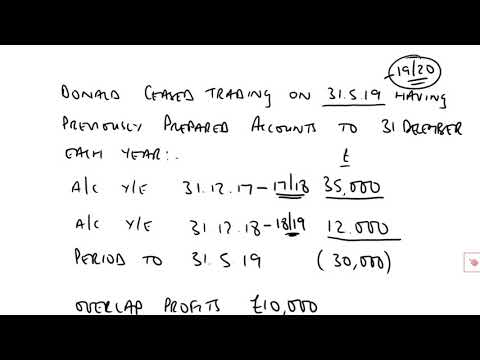 19/20
DONALD CEASED TRADING ON 31.5.19 HAVING
PREVIOUSLY PREPARED ACCOUNTS TO 31 DECEMBER
EACH YEAR:-
£
A/C Y/E 31.12.17 - 17/18 35,000
A/C Y/E 31.12.18 - 18/19 12.000
PERIOD TO 31.5 19 (30,000)
OVERLAP PROFITS £10,000